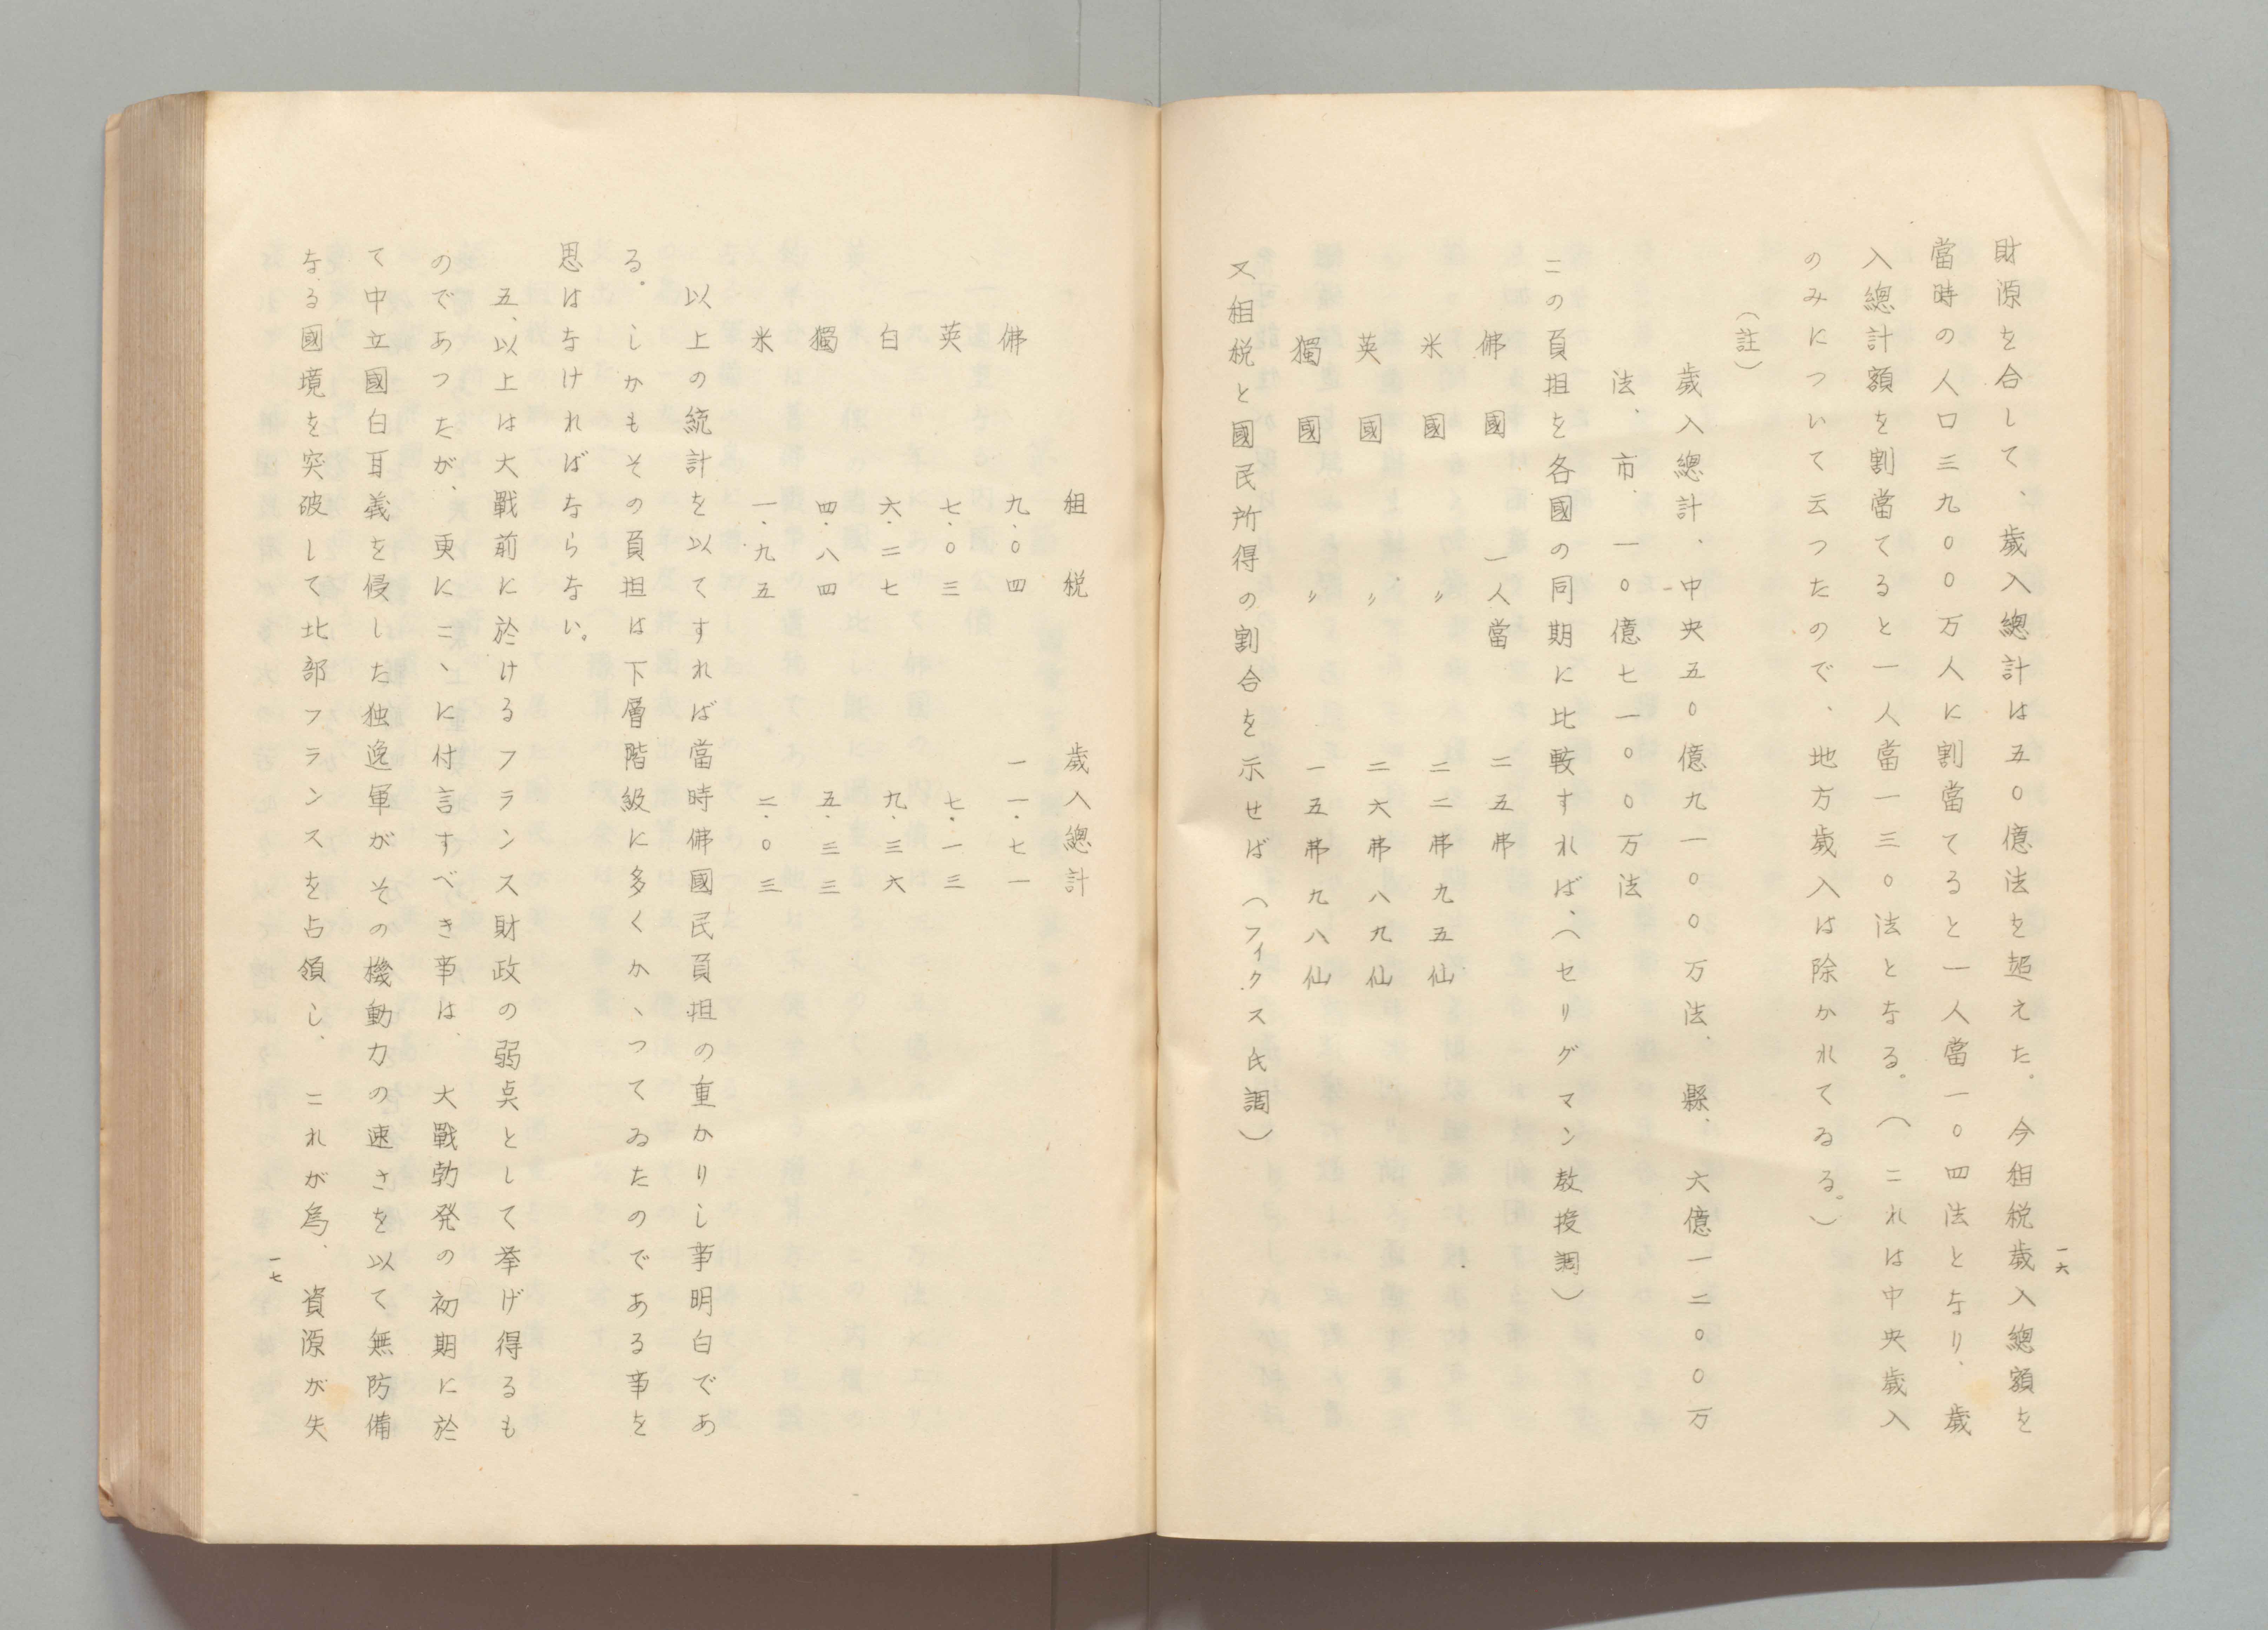 一六
財源を合して、歳入總計は五〇億法を超えた。今租税歳入總額を
當時の人口三九〇〇万人に割當てると一人當一〇四法となり、歳
入總計額を割當てると一人當一三〇法となる。（これは中央歳入
のみについて云つたので、地方歳入は除かれてゐる。）
（註）
歳入總計、中央五〇億九一〇〇万法、縣、六億一二〇〇万
法、市、一〇億七一〇〇万法
この負担を各國の同期に比較すれば、（セリグマン教授調）
佛國 一人當 二五弗
米國 〃 二二弗九五仙
英國 〃 二六弗八九仙
獨國 〃 一五弗九八仙
又租税と國民所得の割合を示せば（フィクス氏調）
租税 歳入總計
佛 九・〇四 一一・七一
英 七・〇三 七・一三
白 六・二七 九・三六
獨 四・八四 五・三三
米 一・九五 二・〇三
以上の統計を以てすれば當時佛國民負担の重かりし事明白であ
る。しかもその負担は下層階級に多くかゝつてゐたのである事を
思はなければならない。
五、以上は大戰前に於けるフランス財政の弱点として挙げ得るも
のであつたが、更にこゝに付言すべき事は、大戰勃発の初期に於
て中立國白耳義を侵した独逸軍がその機動力の速さを以て無防備
なる國境を突破して北部フランスを占領し、これが為、資源が失
一七